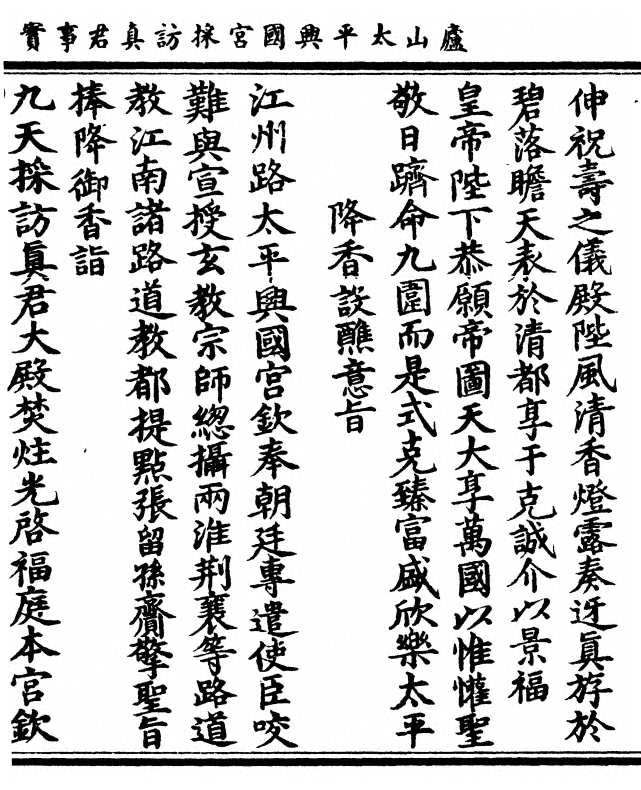 廬山太平興國宮採訪真君事實
伸祝壽之儀殿陛風清香燈露奏迓眞斿於
碧落瞻天表於清都享于克誠介以景福
皇帝陛下恭願帝圖天大享萬國以惟懽聖
敬日躋命九圍而是式克臻富盛欣樂太平
降香設醮意旨
江州路太平興國宮欽奉朝廷專遣使臣咬
難與宣授玄教宗師緫攝兩淮荆襄等路道
教江南諸路道教都提點張留孫齎擎聖旨
捧降御香詣
九天採訪眞君大殿焚炷光啓福庭本宮欽